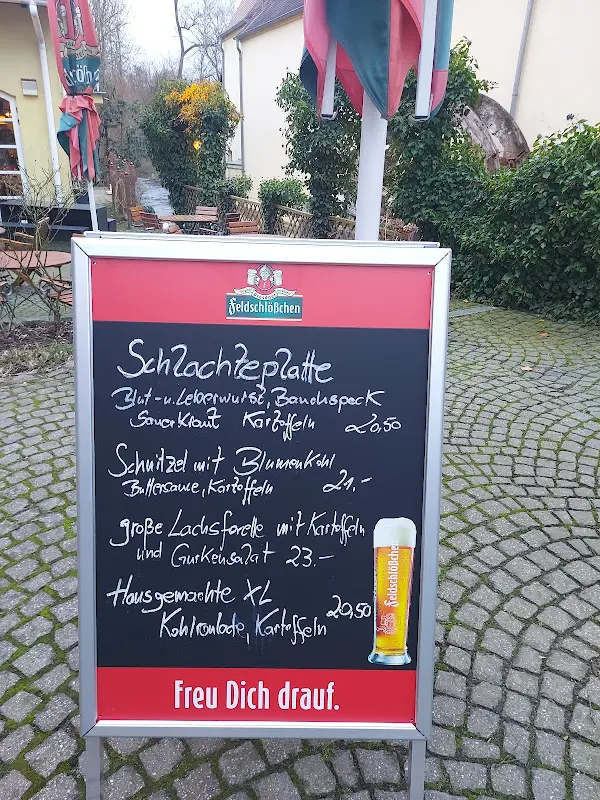 Feldschlößchen
Schlachteplatte
Blut-u. Leberwurst, Bauchspeck
Sauerkraut Kartoffeln 20,50
Schnitzel mit Blumenkohl
Buttersauce, Kartoffeln 21,-
große Lachsforelle mit Kartoffeln
und Gurkensalat 23.-
Hausgemachte XL
Kohlroulade, Kartoffeln 20,50
Feldschlößchen
Freu Dich drauf.